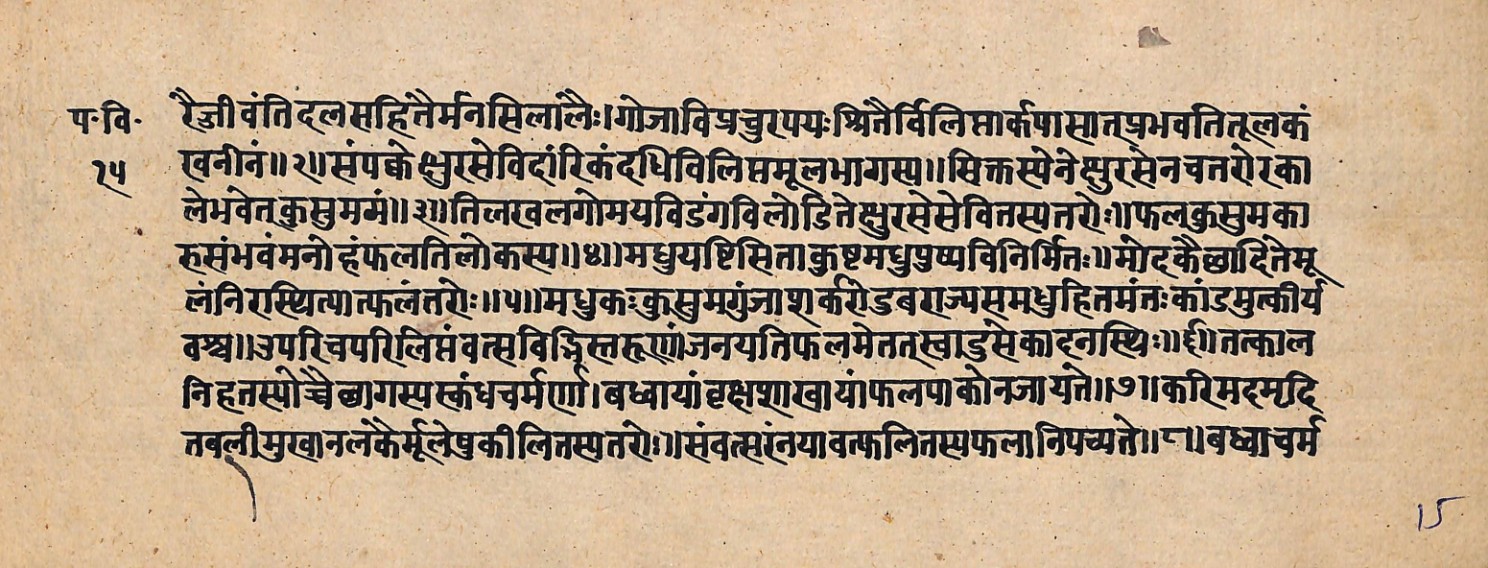 प॰वि॰
१५
रैर्जीवंतिदलसहितैर्मनसिलालैः।गोजाविप्रचुरपयःश्रितैर्विलिप्तार्कपासात्प्रभवतितूलकं
खनीनं॥२॥संपक्केक्षुरसेविदारिकंदधिविलिप्तमूलभागस्य॥सिक्तस्येनेक्षुरसेनचतरोरका
लेभवेत्कुसुममगं॥३॥तिलखलगोमयविडंगविलोडितेक्षुरसेसेवितस्यतरोः॥फलकुसुमका
रुसंभवंमनोहंफलतिलोकस्य॥४॥मधुयष्टिसिताकुष्टमधुपुष्पविनिर्मितः॥मोदकैछादितेमू
लंनिरास्थित्पात्फलंतरोः॥५॥मधुकःकुसुमगुंजाशर्करोडुबराज्यसमधुहितमंत्तःकांडमुत्कीर्य
वश्च॥उपरिचपरिलिप्तंवत्सविद्भिस्तरूणांजनयतिफलमेतत्स्वाडुसेकादनस्थिः॥६॥तत्काल
निहतस्पोच्चैछागस्यस्कंधचर्मणां।बध्वायांवृक्षशाखायांफलपाकोनजायते॥७॥करिमदमृदि
तबलीमुखानलकैर्मूलेषुकीलितस्यतरोः॥संवत्सरंनयावत्फलितस्यफलानिपच्यते॥८॥बध्वाचर्म
15